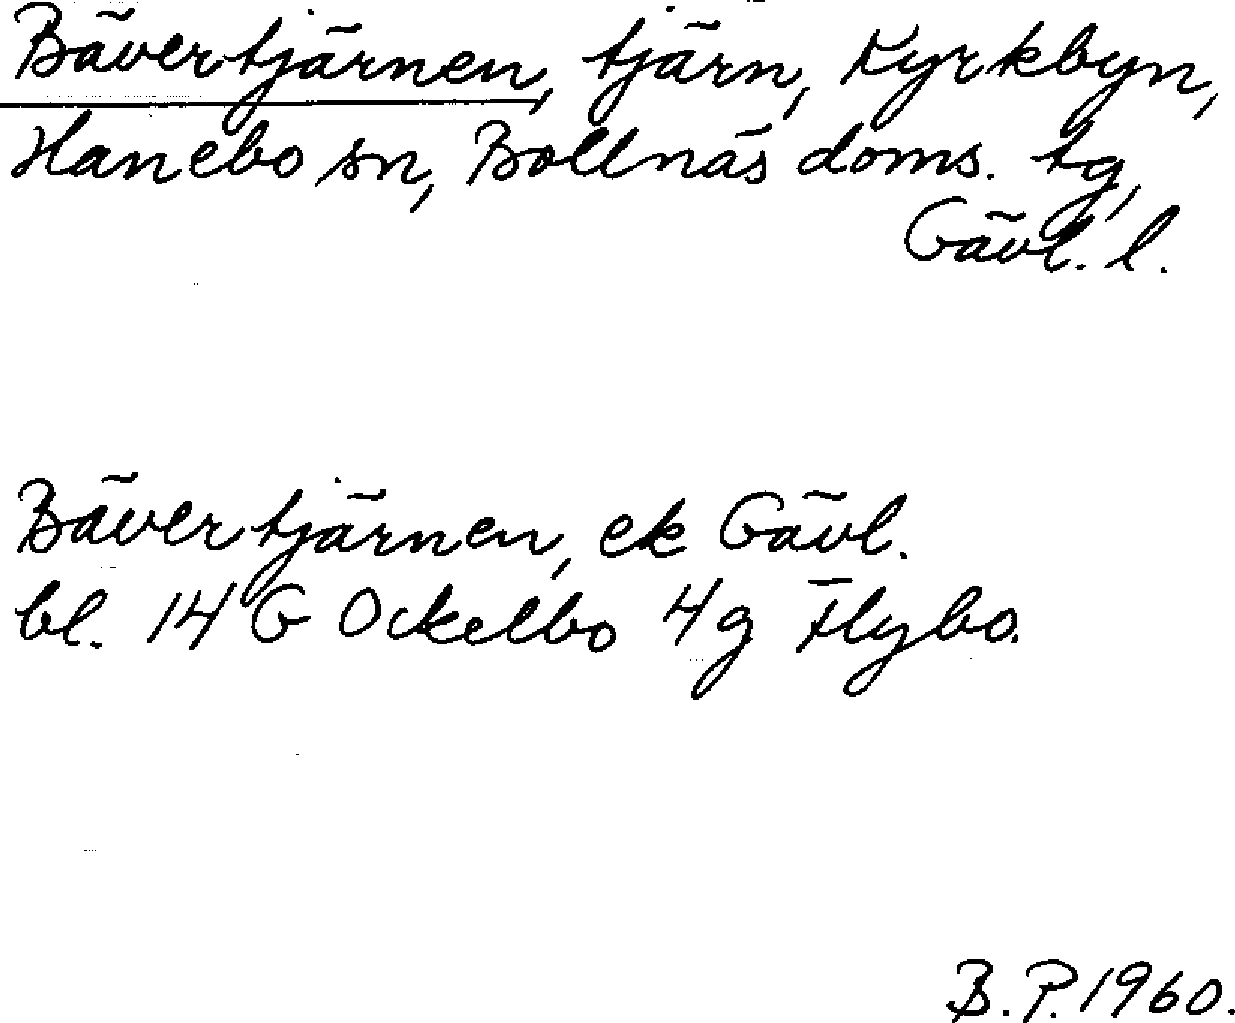 Bävertjärnen, tjärn, Kyrkbyn,
Hanebo sn, Bollnäs doms. tg,
Gävl. l.
Bävertjärnen, ek Gävl.
bl. 14 G Ockelbo 4g Flybo.
B.P. 1960.